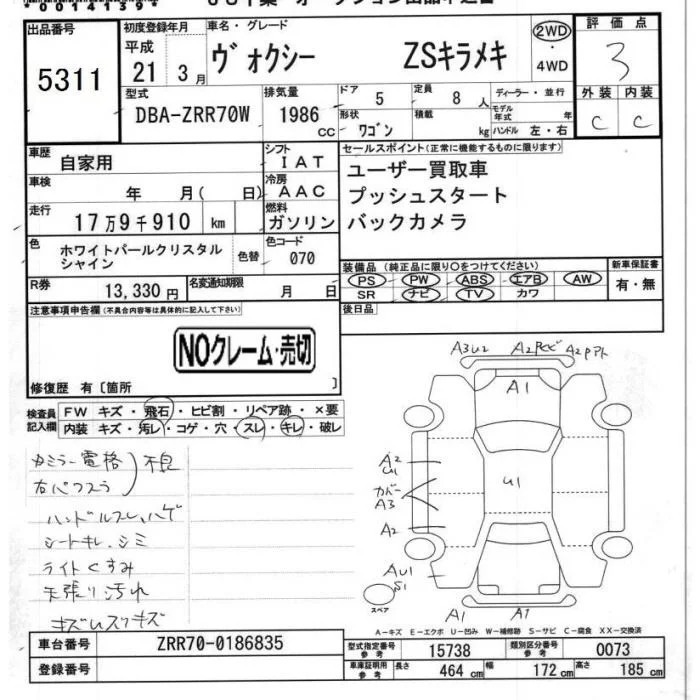 出品番号 初度登録年月 車名・グレード 2WD 評価点
5311 平成 21 3月 ヴォクシー ZSキラメキ ・4WD 3
型式 排気量 ドア 定員 ディーラー・並行 外装 内装
DBA-ZRR70W 1986 cc 5 8人 モデル年式 年 C C
形状 ワゴン 積載 kg ハンドル 左・右
車歴 自家用 シフト IAT セールスポイント(正常に機能するものに限ります)
車検 年 月( 日) 冷房 AAC ユーザー買取車
走行 17万9千910 km 燃料 ガソリン プッシュスタート
バックカメラ
色 ホワイトパールクリスタルシャイン 色替 色コード 070
装備品(純正品に限り○をつけてください) 新車保証書
PS PW ABS エアB AW 有・無
SR ナビ TV カワ
R券 13,330円 名変通知期限 月 日
注意事項申告欄(不具合内容等は具体的に記入して下さい) 後日品
NOクレーム・売切
修復歴 有〔箇所 〕
検査員記入欄 FW キズ・飛石・ヒビ割・リペア跡・×要
内装 キズ・汚レ・コゲ・穴・スレ・キレ・破レ
カミラー電格 不良
右パワスラ
ハンドルスレ、ハゲ
シートキレ、シミ
ライトくすみ
天張り汚れ
キズUスリキズ
A3U2 A2 A2
A1
A2
U1
U1
カバー
A3
A2
AU1
S1
スペア
A1 A1
A-キズ E-エクボ U-凹み W-補修跡 S-サビ C-腐食 XX-交換済
車台番号 ZRR70-0186835 型式指定番号 参考 15738 類別区分番号 参考 0073
登録番号 車庫証明用 参考 長さ 464 cm 幅 172 cm 高さ 185 cm